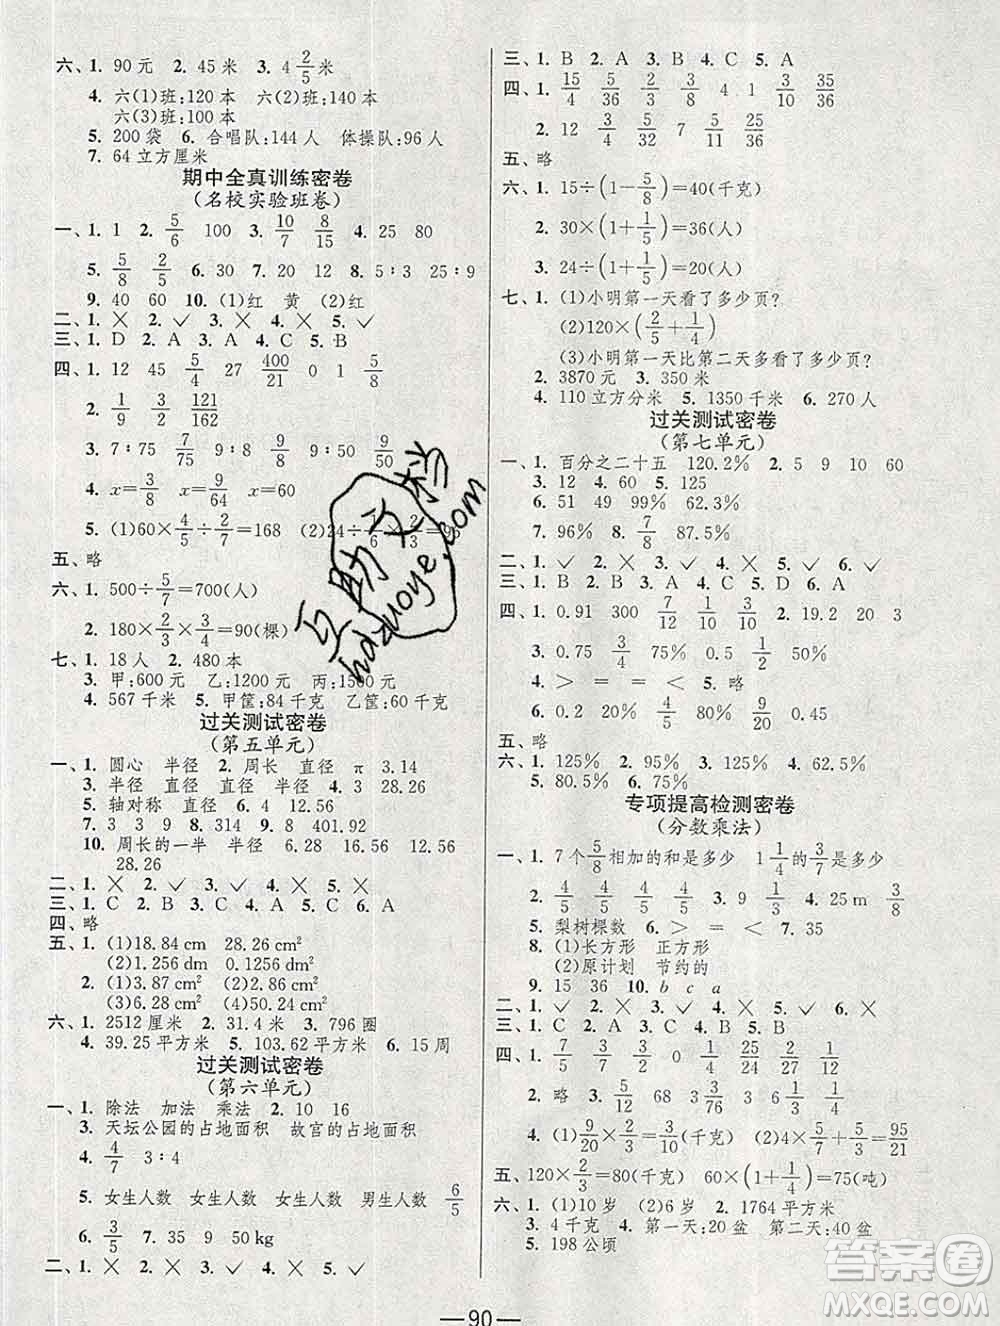 六、1. 90元 2. 45米 3. 4 2/5 米
4. 六(1)班:120本 六(2)班:140本
六(3)班:100本
5. 200袋 6. 合唱队:144人 体操队:96人
7. 64立方厘米
期中全真训练密卷
(名校实验班卷)
一、1. 1 2. 5/6 100 3. 10/7 8/15 4. 25 80
5. 5/8 2/5 6. 30 7. 20 12 8. 5∶3 25∶9
9. 40 60 10. (1)红 黄 (2)红
二、1. ╳ 2. ✓ 3. ╳ 4. ╳ 5. ✓
三、1. D 2. A 3. A 4. C 5. B
四、1. 12 45 5/4 27 400/21 0 1 3/8
2. 1/9 3/2 121/162
3. 7∶75 7/75 9∶8 9/8 9∶50 9/50
4. x=3/8 x=9/64 x=60
5. (1)60×4/5÷2/7=168
五、略
六、1. 500÷5/7=700(人)
2. 180×2/3×3/4=90(棵)
七、1. 18人 2. 480本
3. 甲:600元 乙:1200元 丙:1500元
4. 567千米 5. 甲筐:84千克 乙筐:60千克
过关测试密卷
(第五单元)
一、1. 圆心 半径 2. 周长 直径 π 3.14
3. 半径 直径 半径 直径 4. 3 28.26
5. 轴对称 直径 6. 2
7. 3 3 9 8. 314 9. 8 401.92
10. 周长的一半 半径 6.28 16.56 12.56
28.26
二、1. ╳ 2. ╳ 3. ✓ 4. ╳ 5. ╳ 6. ✓
三、1. C 2. B 3. A 4. B 5. C 6. A
四、略
五、1. (1)18.84 cm 28.26 cm²
(2)1.256 dm 0.1256 dm²
2. (1)3.87 cm² (2)2.86 cm²
(3)6.28 cm² (4)50.24 cm²
六、1. 2512厘米 2. 31.4米 3. 796圈
4. 39.25平方米 5. 103.62平方米 6. 15周
过关测试密卷
(第六单元)
一、1. 除法 加法 乘法 2. 10 16
3. 天坛公园的占地面积 故宫的占地面积
4. 4/7 3∶4
5. 女生人数 女生人数 女生人数 男生人数 6/5
6. 3/5 7. 35 9 50 kg
二、1. ╳ 2. ╳ 3. ✓ 4. ╳ 5. ✓
三、1. B 2. A 3. B 4. C 5. A
四、1. 15/4 5/36 3/4 1/24 4 1 3/10 35/36
2. 12 3/4 5/32 7 5/11 25/36
五、略
六、1. 15÷(1-5/8)=40(千克)
2. 30×(1+1/5)=36(人)
3. 24÷(1+1/5)=20(人)
七、1. (1)小明第一天看了多少页?
(2)120×(2/5+1/4)
(3)小明第一天比第二天多看了多少页?
2. 3870元 3. 350米
4. 110立方分米 5. 1350千米 6. 270人
过关测试密卷
(第七单元)
一、1. 百分之二十五 120.2% 2. 5 9 10 60
3. 12 4. 60 5. 125
6. 51 49 99% 62.3%
7. 96% 8. 7/8 87.5%
二、1. ✓ 2. ╳ 3. ╳ 4. ✓ 5. ╳ 6. ✓
三、1. B 2. B 3. A 4. D 5. A 6. B
四、1. 0.91 300 7/12 7/10 3/10 2. 19.2 20
3. 0.75 3/4 75% 0.5 1/2 50%
4. > = = < 5. 略
6. 0.2 20% 4/5 80% 9/20 0.45
五、略
六、1. 125% 2. 60% 3. 12.5% 4. 62.5%
5. 80.5% 6. 75%
专项提高检测密卷
(分数乘法)
一、1. 7个5/8相加的和是多少 1 1/4的3/7是多少
2. 4/5 4/5 4/5 4/5 3. 9 1/3 4. 25 m 3/8
5. 梨树棵数 6. > = < 7. 35
8. (1)长方形 正方形
(2)原计划 节约的
9. 15 36 10. b c a
二、1. ✓ 2. ✓ 3. ╳ 4. ╳ 5. ✓ 6. ╳
三、1. C 2. A 3. D 4. A 5. C 6. A
四、1. 7/5 3/2 7/3 0 1/4 3/8 21/20 5/36
2. 略 3. 5/12 68 3/2 7/24
4. (1)9/20×2/3=3/10(千克) (2)4×3/5+7/5×5/3=95/21
五、120×2/3=80(千克) 60×(1+1/4)=75(吨)
六、1. (1)10岁 (2)6岁 2. 1764平方米
3. 4千克 4. 第一天:20盆 第二天:40盆
5. 198公顷
— 90 —
互助文档
hdzuoye.com
答案圈
MXQE.COM